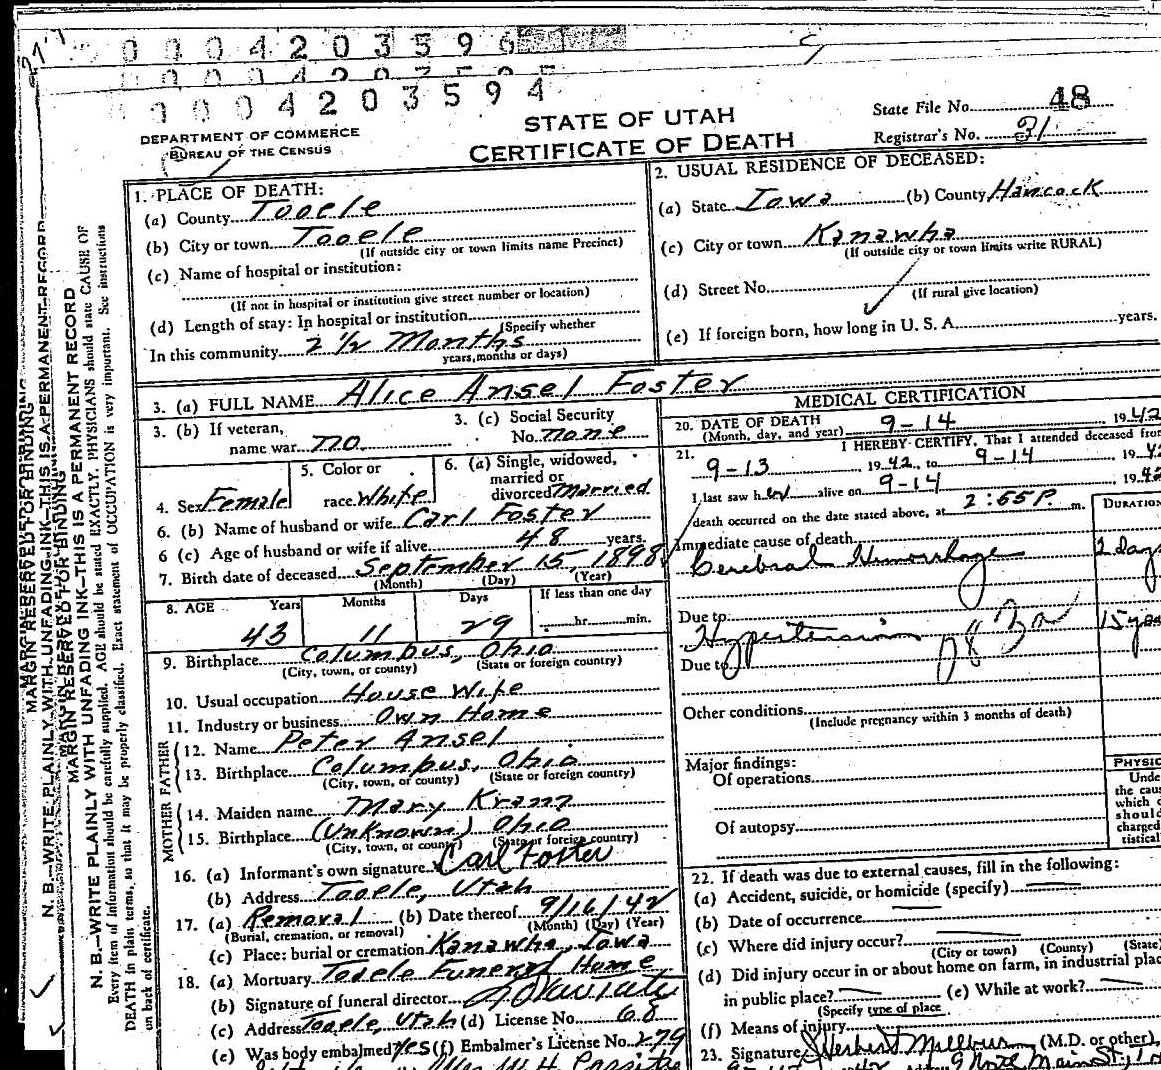 0 0 0 4 2 0 3 5 9 6
0 0 0 4 2 0 3 5 9 4
STATE OF UTAH
CERTIFICATE OF DEATH
DEPARTMENT OF COMMERCE
BUREAU OF THE CENSUS
State File No. 48
Registrar's No. 31
1. PLACE OF DEATH:
(a) County Tooele
(b) City or town Tooele
(If outside city or town limits name Precinct)
(c) Name of hospital or institution:
(If not in hospital or institution give street number or location)
(d) Length of stay: In hospital or institution
(Specify whether
In this community 2 1/2 Months
years, months or days)
2. USUAL RESIDENCE OF DECEASED:
(a) State Iowa (b) County Hancock
(c) City or town Kanawha
(If outside city or town limits write RURAL)
(d) Street No.
(If rural give location)
(e) If foreign born, how long in U. S. A. years.
3. (a) FULL NAME Alice Ansel Foster
3. (b) If veteran,
name war no
3. (c) Social Security
No. none
4. Sex Female
5. Color or
race White
6. (a) Single, widowed,
married or
divorced Married
6. (b) Name of husband or wife Carl Foster
6 (c) Age of husband or wife if alive 48 years.
7. Birth date of deceased September 15, 1898
(Month) (Day) (Year)
8. AGE Years Months Days If less than one day
43 11 29 hr. min.
9. Birthplace Columbus, Ohio
(City, town, or county) (State or foreign country)
10. Usual occupation House Wife
11. Industry or business Own Home
FATHER
12. Name Peter Ansel
13. Birthplace Columbus, Ohio
(City, town, or county) (State or foreign country)
MOTHER
14. Maiden name Mary Kranz
15. Birthplace (Unknown) Ohio
(City, town, or county) (State or foreign country)
16. (a) Informant's own signature Carl Foster
(b) Address Tooele, Utah
17. (a) Removal (b) Date thereof 9/16/42
(Burial, cremation, or removal) (Month) (Day) (Year)
(c) Place: burial or cremation Kanawha, Iowa
18. (a) Mortuary Tooele Funeral Home
(b) Signature of funeral director
(c) Address Tooele, Utah (d) License No. 68
(e) Was body embalmed Yes (f) Embalmer's License No. 279
MEDICAL CERTIFICATION
20. DATE OF DEATH 9-14 1942
(Month, day, and year)
21. I HEREBY CERTIFY, That I attended deceased from
9-13, 1942, to 9-14, 194
I last saw her alive on 9-14, 1942
death occurred on the date stated above, at 2:55 P. m.
Immediate cause of death
DURATION
Cerebral Hemorrhage 2 days
Due to
Hypertension 15 yea
Due to
Other conditions
(Include pregnancy within 3 months of death)
Major findings:
Of operations
Of autopsy
PHYSIC
Unde
the cau
which d
should
charged
tistical
22. If death was due to external causes, fill in the following:
(a) Accident, suicide, or homicide (specify)
(b) Date of occurrence
(c) Where did injury occur?
(City or town) (County) (State)
(d) Did injury occur in or about home on farm, in industrial plac
in public place? (e) While at work?
(Specify type of place
(f) Means of injury
23. Signature (M.D. or other)
Address Main St.
MARGIN RESERVED FOR BINDING
N. B.—WRITE PLAINLY WITH UNFADING INK—THIS IS A PERMANENT RECORD
MARGIN RESERVED FOR BINDING
N. B.—WRITE PLAINLY WITH UNFADING INK—THIS IS A PERMANENT RECORD
Every item of information should be carefully supplied. AGE should be stated EXACTLY. PHYSICIANS should state CAUSE OF
DEATH in plain terms, so that it may be properly classified. Exact statement of OCCUPATION is very important. See instructions
on back of certificate.